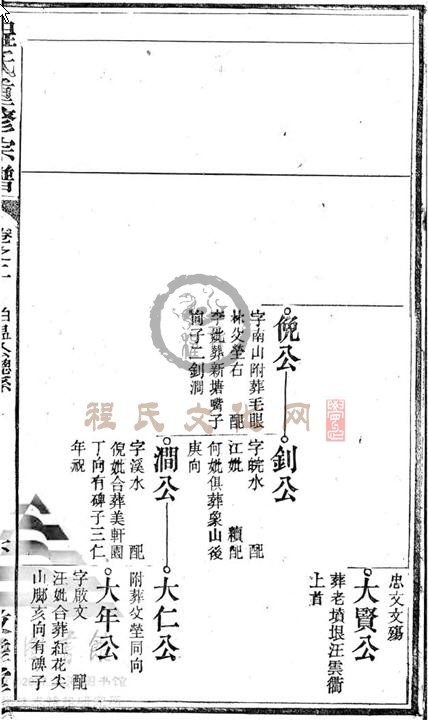 忠文文殤
大賢公
葬老墳垠汪雲衢
上首
俛公
字南山附葬毛眼
林父塋右 配
李妣葬新塘嘴子
向子二釗澗
釗公
字皖水 配
江妣 續配
何妣俱葬象山後
庚向
澗公
字溪水 配
倪妣合葬美軒園
丁向有碑子三仁
年祝
大仁公
附葬父塋同向
大年公
字啟文 配
汪妣合葬紅花尖
山脚亥向有碑子
氏重修宗譜
卷之二
程氏文化网